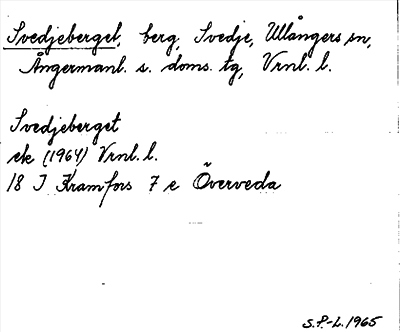 Svedjeberget, berg, Svedje, Ullångers sn,
Ångermanl. s. doms. tg, Vrnl. l.
Svedjeberget
ek (1964) Vrnl. l.
18 I Kramfors 7 e Överveda
S.P.-L. 1965